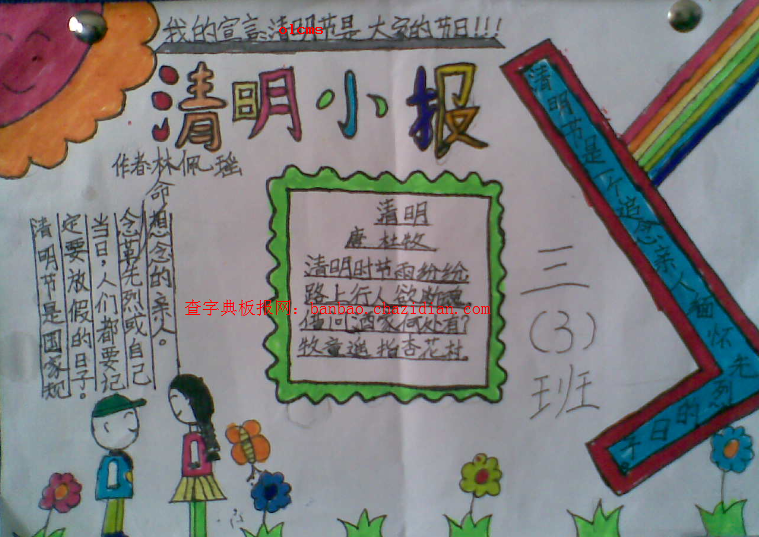 我的宣言:清明节是大家的节日!!!
清明小报
作者:林佩瑶
清明节是国家规
定要放假的日子。
当日,人们都要记
念革先烈或自己
命想念的亲人。
清明
唐 杜牧
清明时节雨纷纷
路上行人欲断魂
借问酒家何处有?
牧童遥指杏花村
查字典板报网:banbao.chazidian.com
三
(3)
班
清明节是一个追念亲人缅怀先
烈的日子